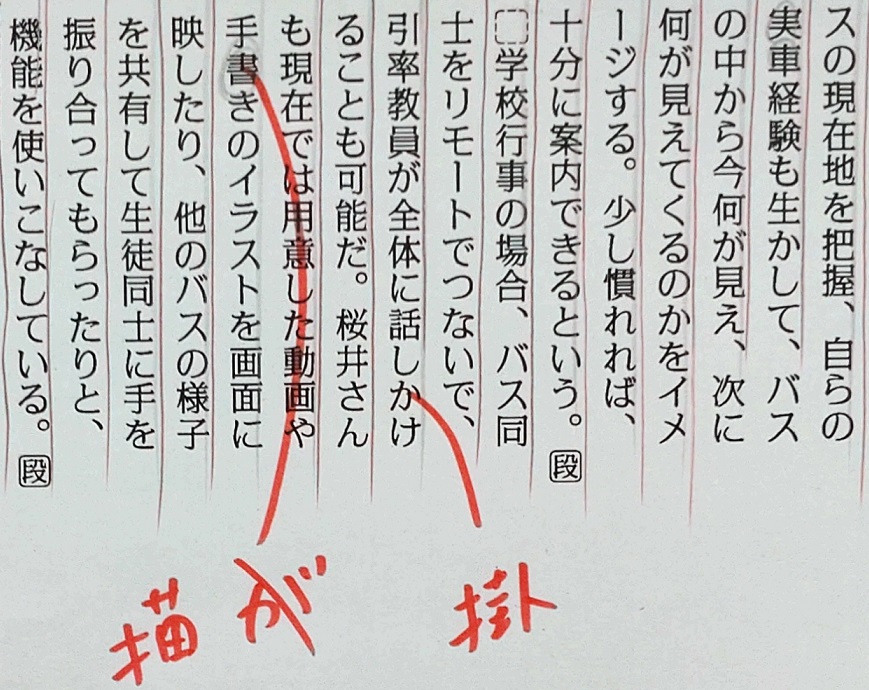 スの現在地を把握、自らの
実車経験も生かして、バス
の中から今何が見え、次に
何が見えてくるのかをイメ
ージする。少し慣れれば、
十分に案内できるという。段
学校行事の場合、バス同
士をリモートでつないで、
引率教員が全体に話しかけ
ることも可能だ。桜井さん
も現在では用意した動画や
手書きのイラストを画面に
映したり、他のバスの様子
を共有して生徒同士に手を
振り合ってもらったりと、
機能を使いこなしている。段
掛
が
描